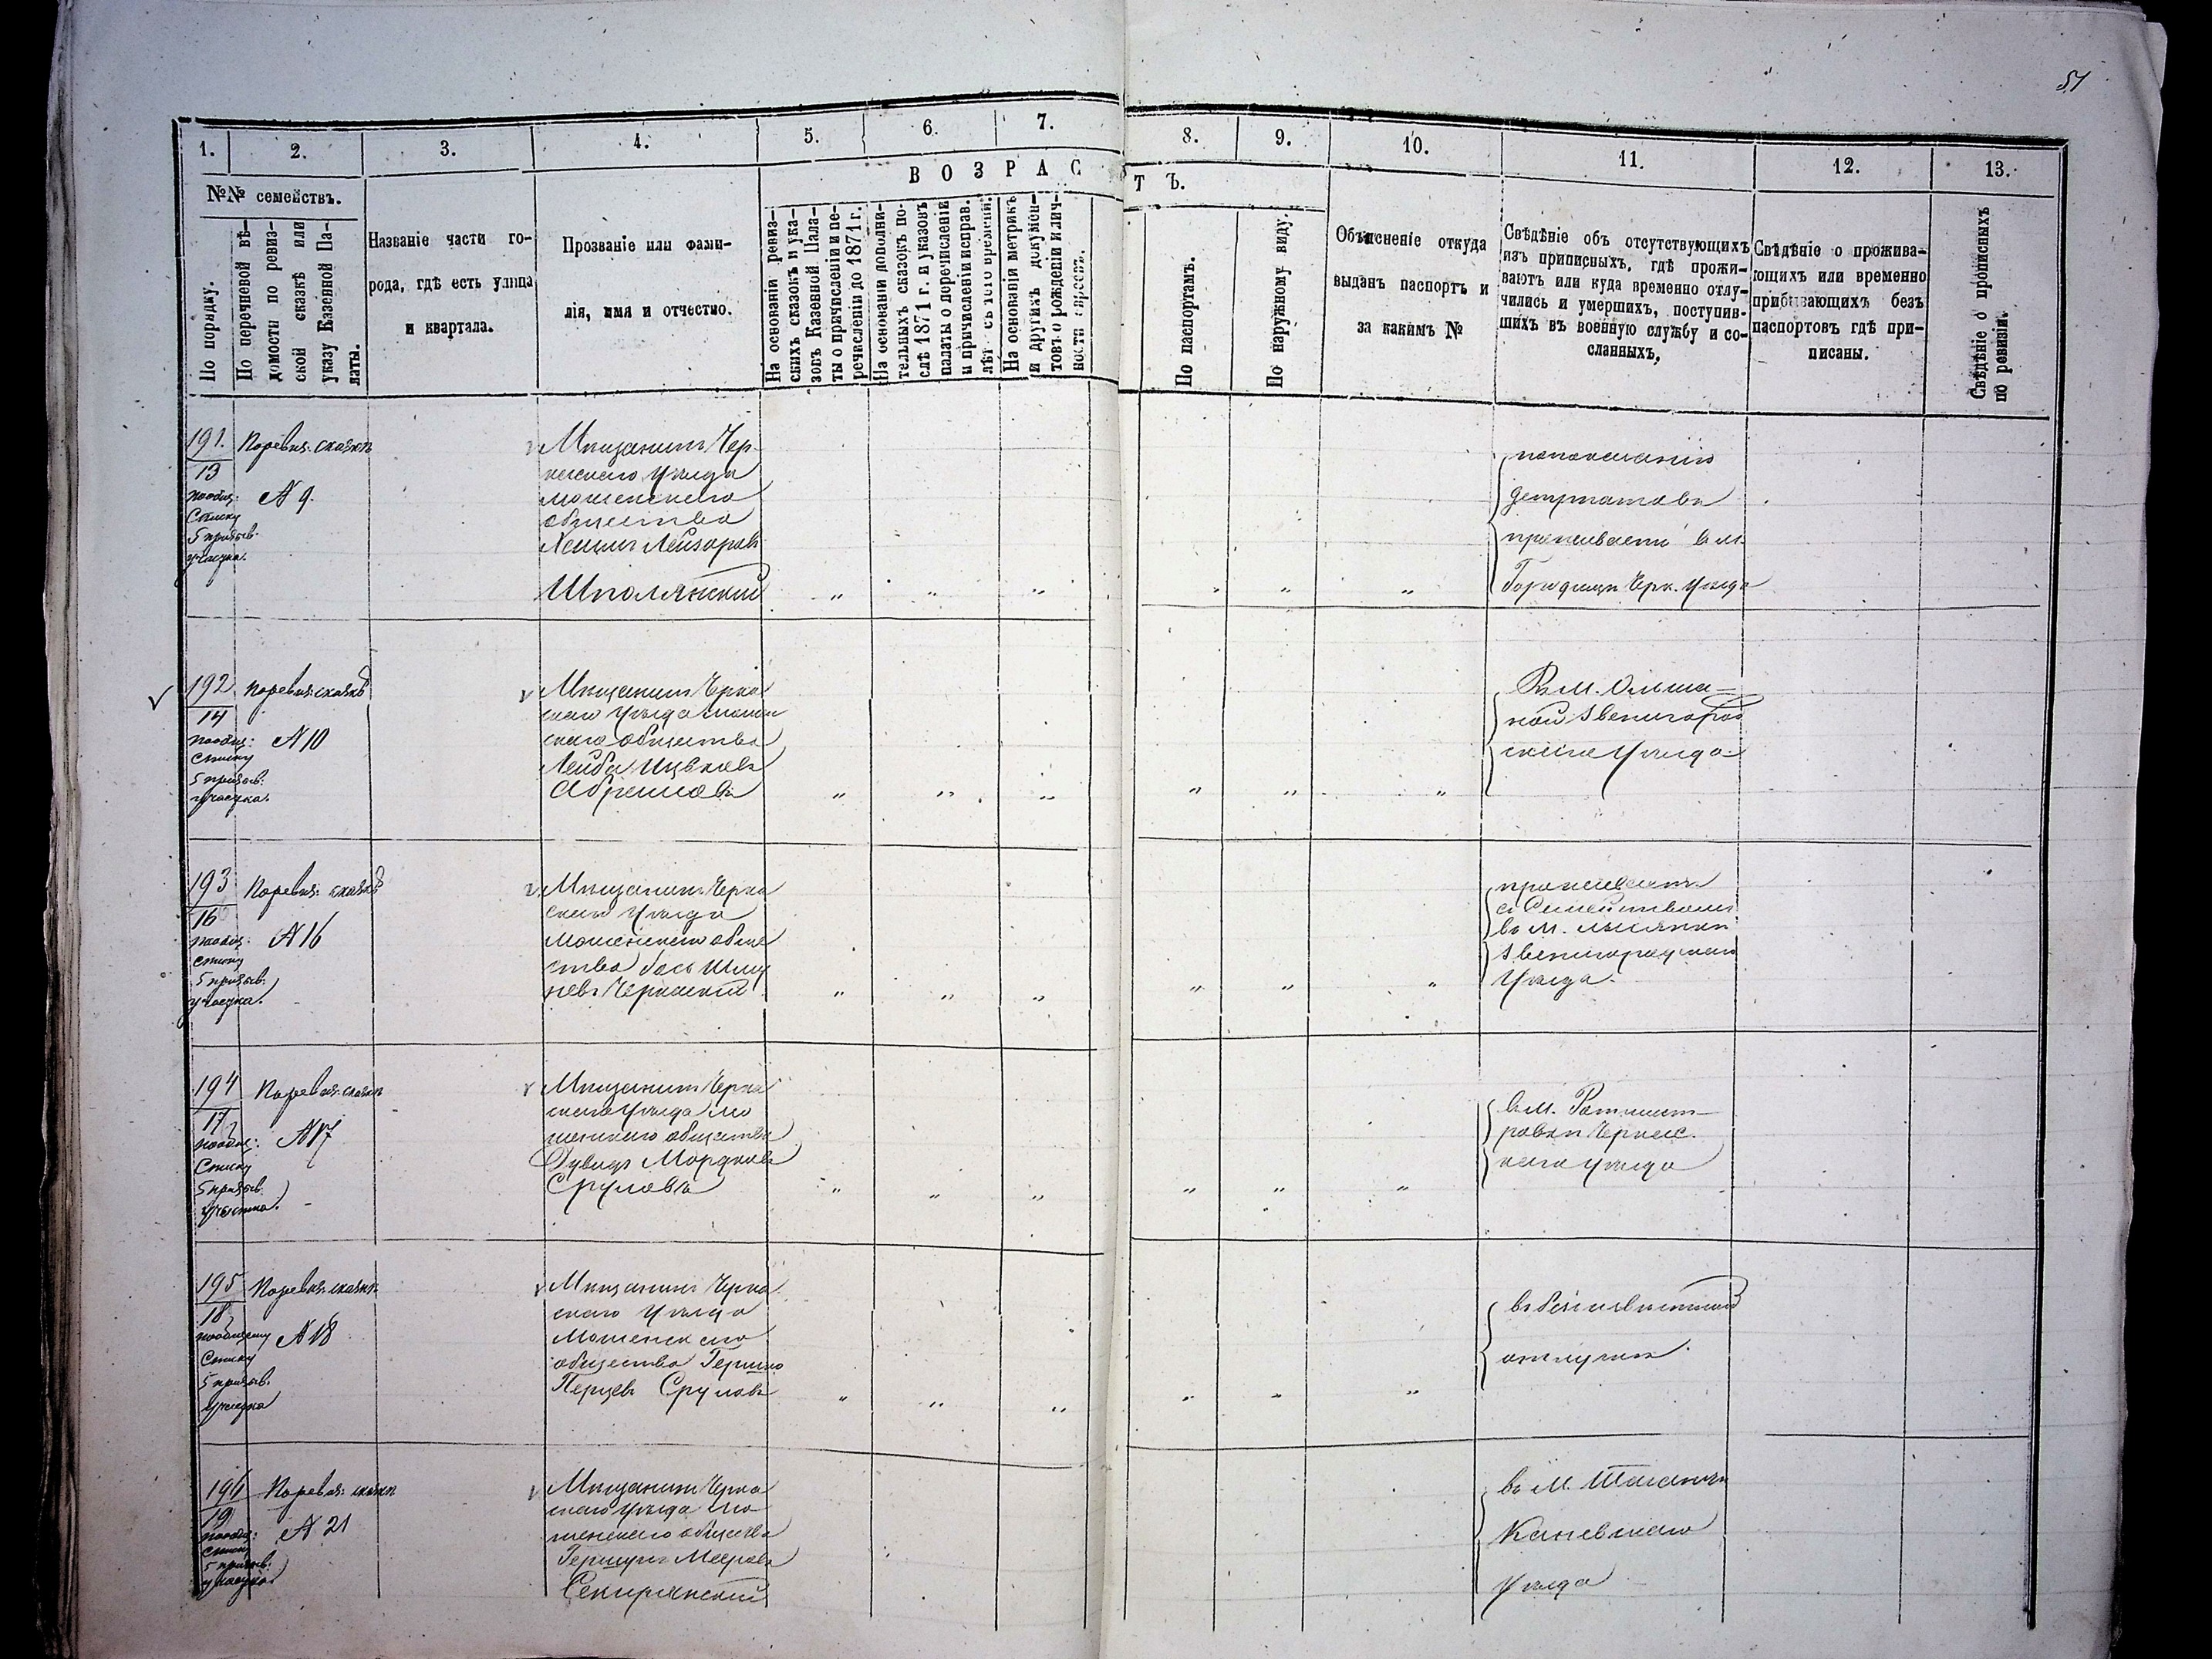 51
1. 2. 3. 4. 5. 6. 7. 8. 9. 10. 11. 12. 13.
№№ семействъ.
ВОЗРАС
ТЪ.
По порядку.
По перечневой вѣ-
домости по ревиз-
ской сказкѣ или
указу Казенной Па-
латы.
Названіе части го-
рода, гдѣ есть улица
и квартала.
Прозваніе или фами-
лія, имя и отчество.
На основаніи ревиз-
скихъ сказокъ и ука-
зовъ Казенной Пала-
ты о причисленіи и пе-
речисленіи до 1871 г.
На основаніи дополни-
тельныхъ сказокъ по-
слѣ 1871 г. и указовъ
палаты о перечисленіи
и причисленіи исправ.
лѣт съ того времени.
На основаніи метрикъ
и другихъ докумен-
товъ о рожденіи и лич-
ности
По паспортамъ.
По наружному виду.
Объясненіе откуда
выданъ паспортъ и
за какимъ №
Свѣдѣніе объ отсутствующихъ
изъ приписныхъ, гдѣ прожи-
ваютъ или куда временно отлу-
чились и умершихъ, поступив-
шихъ въ военную службу и со-
сланныхъ,
Свѣдѣніе о прожива-
ющихъ или временно
прибывающихъ безъ
паспортовъ гдѣ при-
писаны.
Свѣдѣніе о прописныхъ
по ревизіи.
191.
13
пообщ:
списку
5 призыв.
участка.
Поревиз. сказкѣ
№ 9.
Мѣщанинъ Чер
каскаго уѣзда
мошенскаго
общества
Лейзоровъ
Шполянский
показанію
депутатовъ
проживаетъ в м.
Городищи Черк. уѣзда
192
14
пообщ:
списку
5 призыв:
участка.
поревиз. сказкѣ
№ 10
Мѣщанинъ Черка
скаго уѣзда мошен
скаго общества
Лейба Ицковъ
Абрамовъ
Въ М. Ольша=
ной Звенигород
скаго уѣзда
193
16
пообщ:
списку
5 призыв.
участка.
Поревиз: сказкѣ
№ 16
Мѣщанинъ Черка
скаго уѣзда
Мошенскаго обще
ства Бось Шму
левъ Черкаский
проживаетъ
съ Семействомъ
въ М. Лысянки
Звенигородскаго
Уѣзда.
194
17
пообщ:
Списку
5 призыв.
участка.
Поревиз. сказкѣ
№ 17
Мѣщанинъ Черка
скаго уѣзда мо
шенскаго общества
Дувидъ Мордковъ
Сруловъ
въ М. Ротмист-
ровки Черкас.
каго уѣзда
195
18
пообщему
Списку
5 призыв.
участка
Поревиз. сказкѣ
№ 18
Мѣщанинъ Черка
скаго уѣзда
Мошенскаго
общества Гершко
Перцевъ Сруловъ
въ безъизвѣстной
отлучкѣ.
196
19
пообщ:
списку
5 призыв:
участка
Поревиз: сказкѣ
№ 21
Мѣщанинъ Черка
скаго уѣзда Мо
шенскаго общества
Гершунъ Мееровъ
Секирянский
въ М.
Каневскаго
уѣзда